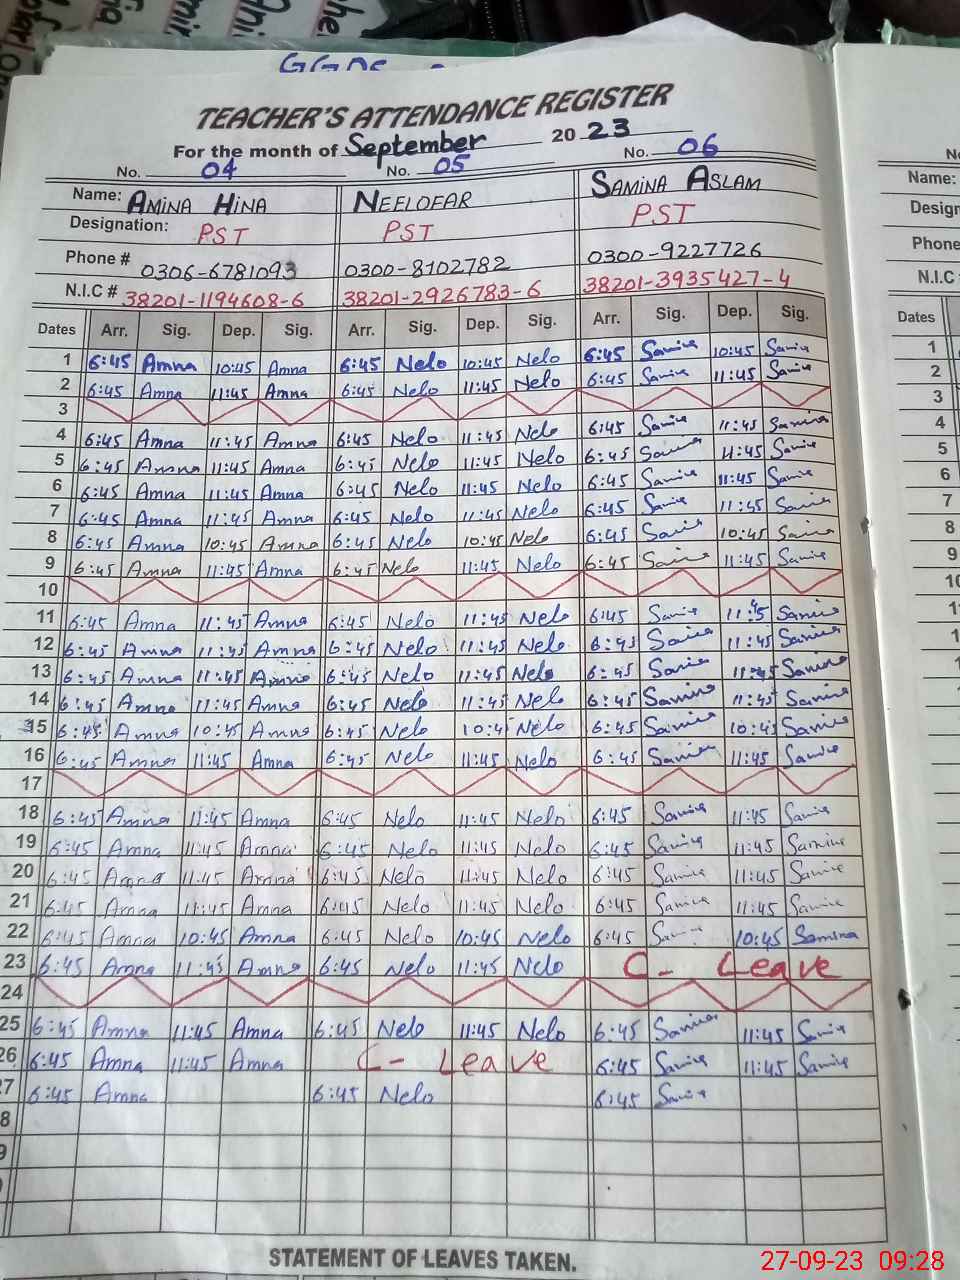 GGPS
TEACHER'S ATTENDANCE REGISTER
For the month of September 2023
No. 04 No. 05 No. 06
Name: AMINA HINA NEELOFAR SAMINA ASLAM
Designation: PST PST PST
Phone # 0306-6781093 0300-8102782 0300-9227726
N.I.C # 38201-1194608-6 38201-2926783-6 38201-3935427-4
Dates Arr. Sig. Dep. Sig. Arr. Sig. Dep. Sig. Arr. Sig. Dep. Sig.
1 6:45 Amna 10:45 Amna 6:45 Nelo 10:45 Nelo 6:45 Samina 10:45 Samina
2 6:45 Amna 11:45 Amna 6:45 Nelo 11:45 Nelo 6:45 Samina 11:45 Samina
3
4 6:45 Amna 11:45 Amna 6:45 Nelo 11:45 Nelo 6:45 Samina 11:45 Samina
5 6:45 Amna 11:45 Amna 6:45 Nelo 11:45 Nelo 6:45 Samina 11:45 Samina
6 6:45 Amna 11:45 Amna 6:45 Nelo 11:45 Nelo 6:45 Samina 11:45 Samina
7 6:45 Amna 11:45 Amna 6:45 Nelo 11:45 Nelo 6:45 Samina 11:45 Samina
8 6:45 Amna 10:45 Amna 6:45 Nelo 10:45 Nelo 6:45 Samina 10:45 Samina
9 6:45 Amna 11:45 Amna 6:45 Nelo 11:45 Nelo 6:45 Samina 11:45 Samina
10
11 6:45 Amna 11:45 Amna 6:45 Nelo 11:45 Nelo 6:45 Samina 11:45 Samina
12 6:45 Amna 11:45 Amna 6:45 Nelo 11:45 Nelo 6:45 Samina 11:45 Samina
13 6:45 Amna 11:45 Amna 6:45 Nelo 11:45 Nelo 6:45 Samina 11:45 Samina
14 6:45 Amna 11:45 Amna 6:45 Nelo 11:45 Nelo 6:45 Samina 11:45 Samina
15 6:45 Amna 10:45 Amna 6:45 Nelo 10:45 Nelo 6:45 Samina 10:45 Samina
16 6:45 Amna 11:45 Amna 6:45 Nelo 11:45 Nelo 6:45 Samina 11:45 Samina
17
18 6:45 Amna 11:45 Amna 6:45 Nelo 11:45 Nelo 6:45 Samina 11:45 Samina
19 6:45 Amna 11:45 Amna 6:45 Nelo 11:45 Nelo 6:45 Samina 11:45 Samina
20 6:45 Amna 11:45 Amna 6:45 Nelo 11:45 Nelo 6:45 Samina 11:45 Samina
21 6:45 Amna 11:45 Amna 6:45 Nelo 11:45 Nelo 6:45 Samina 11:45 Samina
22 6:45 Amna 10:45 Amna 6:45 Nelo 10:45 Nelo 6:45 Samina 10:45 Samina
23 6:45 Amna 11:45 Amna 6:45 Nelo 11:45 Nelo C- Leave
24
25 6:45 Amna 11:45 Amna 6:45 Nelo 11:45 Nelo 6:45 Samina 11:45 Samina
26 6:45 Amna 11:45 Amna C- Leave 6:45 Samina 11:45 Samina
7 6:45 Amna 6:45 Nelo 6:45 Samina
8
9
STATEMENT OF LEAVES TAKEN.
Name:
Phone
N.I.C #
Dates
1
2
3
4
5
6
7
8
9
10
27-09-23 09:28